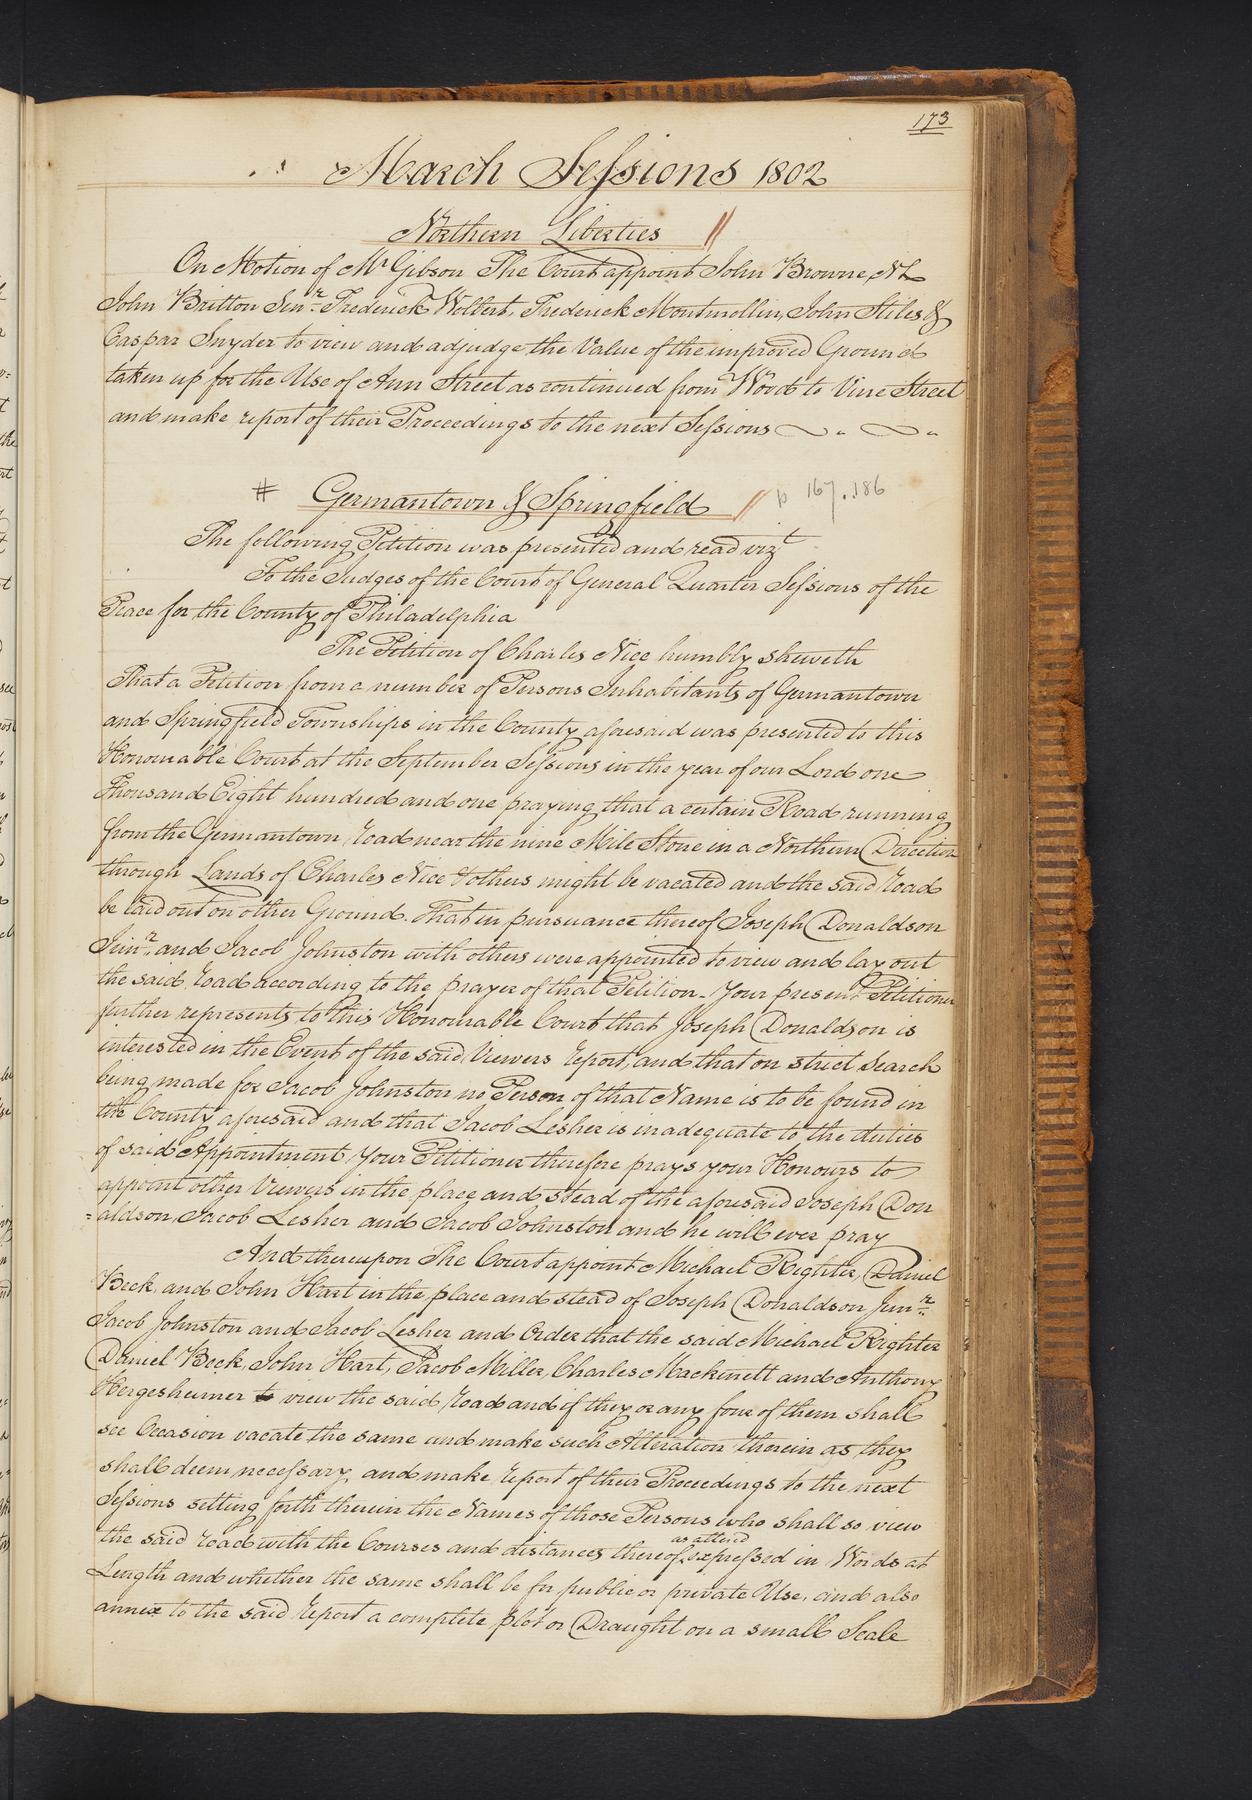 173
March Sessions 1802
Northern Liberties //
On Motion of Mr Gibson The Court appoint John Browne NL
John Britton Senr Frederick Wolbert, Frederick Montmollin, John Stiles &
Caspar Snyder to view and adjudge the Value of the improved Ground
taken up for the Use of Ann Street as continued from Wood to Vine Street
and make report of their Proceedings to the next Sessions
# Germantown & Springfield // p 167.186
The following Petition was presented and read vizt
To the Judges of the Court of General Quarter Sessions of the
Peace for the County of Philadelphia
The Petition of Charles Nice humbly sheweth
That a Petition from a number of Persons Inhabitants of Germantown
and Springfield Townships in the County aforesaid was presented to this
Honourable Court at the September Sessions in the year of our Lord one
Thousand Eight hundred and one praying that a certain Road running
from the Germantown road near the nine Mile Stone in a Northern Direction
through Lands of Charles Nice & others might be vacated and the said road
be laid out on other Ground. That in pursuance thereof Joseph Donaldson
Junr. and Jacob Johnston with others were appointed to view and lay out
the said road according to the prayer of that Petition. Your present Petitioner
further represents to this Honourable Court that Joseph Donaldson is
interested in the Event of the said Viewers report, and that on strict search
being made for Jacob Johnston no Person of that Name is to be found in
the County aforesaid and that Jacob Lesher is inadequate to the duties
of said Appointment Your Petitioner therefore prays your Honours to
appoint other Viewers in the place and stead of the aforesaid Joseph Don
=aldson, Jacob Lesher and Jacob Johnston and he will ever pray
And thereupon The Court appoint Michael Righter, Daniel
Beck, and John Hart in the place and stead of Joseph Donaldson Junr
Jacob Johnston and Jacob Lesher and Order that the said Michael Righter
Daniel Beck, John Hart, Jacob Miller, Charles Mackinett and Anthony
Hergesheimer to view the said road and if they or any four of them shall
see Occasion vacate the same and make such Alteration therein as they
shall deem necessary, and make report of their Proceedings to the next
Sessions setting forth therein the Names of those Persons who shall so view
as altered
the said road with the Courses and distances thereof, expressed in Words at
Length and whether the same shall be for public or private Use, and also
annex to the said report a complete plot or Draught on a small Scale